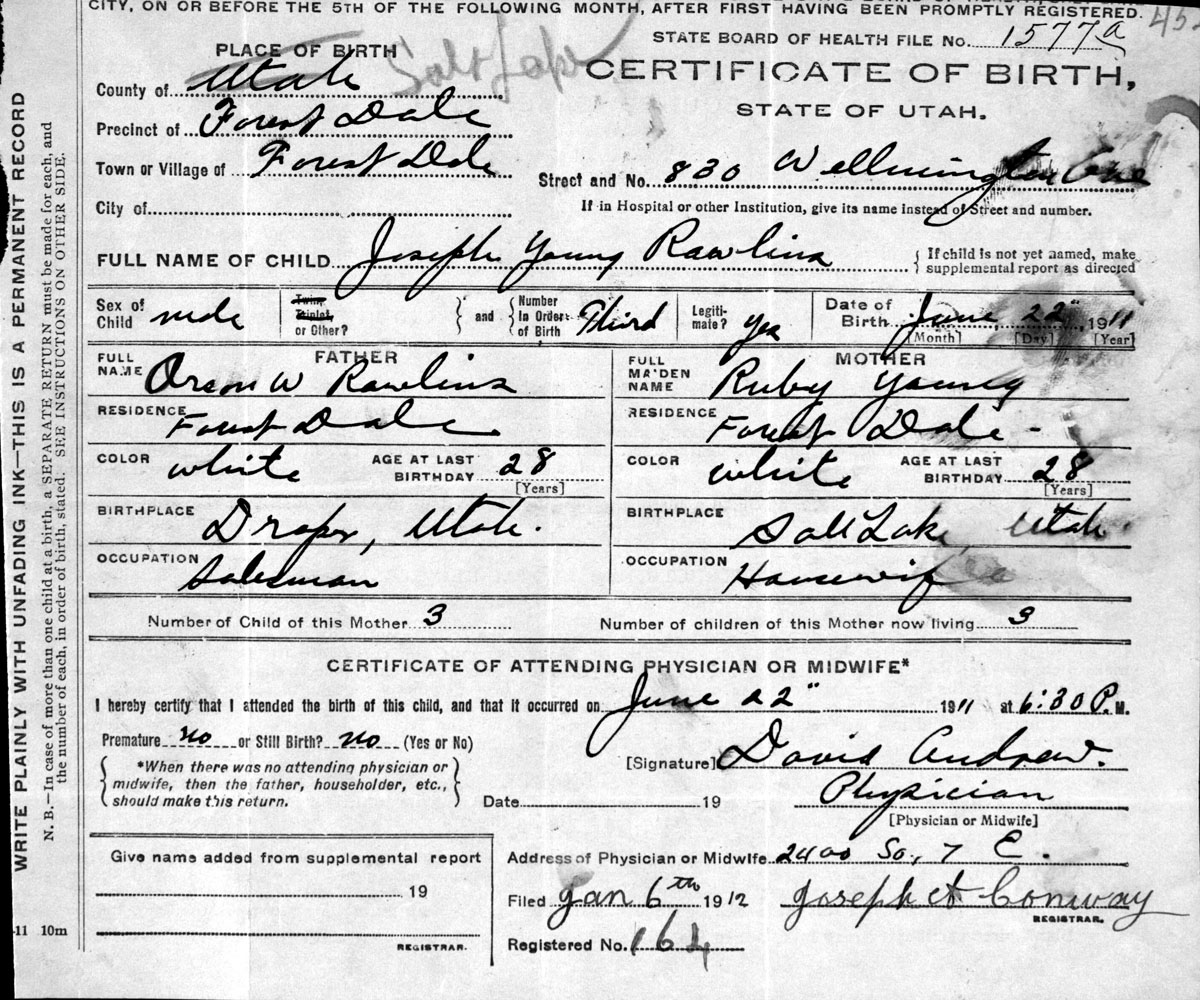 CITY, ON OR BEFORE THE 5TH OF THE FOLLOWING MONTH, AFTER FIRST HAVING BEEN PROMPTLY REGISTERED.
45
STATE BOARD OF HEALTH FILE No. 1577a
PLACE OF BIRTH
Salt Lake
CERTIFICATE OF BIRTH,
STATE OF UTAH.
County of Utah
Precinct of Forest Dale
Town or Village of Forest Dale
Street and No. 830 Wellmington Ave
City of
If in Hospital or other Institution, give its name instead of Street and number.
FULL NAME OF CHILD Joseph Young Rawlins
{ If child is not yet named, make supplemental report as directed
Sex of Child male
Twin, Triplet, or Other?
} and { Number In Order of Birth Third
Legitimate? Yes
Date of Birth June 22", 1911
[Month] [Day] [Year]
FATHER
FULL NAME Orson W Rawlins
RESIDENCE Forest Dale
COLOR white AGE AT LAST BIRTHDAY 28 [Years]
BIRTHPLACE Draper, Utah.
OCCUPATION Salesman
MOTHER
FULL MAIDEN NAME Ruby Young
RESIDENCE Forest Dale -
COLOR white AGE AT LAST BIRTHDAY 28 [Years]
BIRTHPLACE Salt Lake, Utah
OCCUPATION Housewife
Number of Child of this Mother 3 Number of children of this Mother now living 3
CERTIFICATE OF ATTENDING PHYSICIAN OR MIDWIFE*
I hereby certify that I attended the birth of this child, and that it occurred on June 22" 1911 at 6:30 P. M.
Premature no or Still Birth? no (Yes or No)
{ *When there was no attending physician or midwife, then the father, householder, etc., should make this return. }
[Signature] David Andrew.
Date 19
Physician
[Physician or Midwife]
Give name added from supplemental report
19
REGISTRAR.
Address of Physician or Midwife 2400 So., 7 E.
Filed Jan 6th 1912 Joseph H Conway
REGISTRAR.
Registered No. 164
11 10m
WRITE PLAINLY WITH UNFADING INK—THIS IS A PERMANENT RECORD
N. B.—In case of more than one child at a birth, a SEPARATE RETURN must be made for each, and
the number of each, in order of birth, stated. SEE INSTRUCTIONS ON OTHER SIDE.